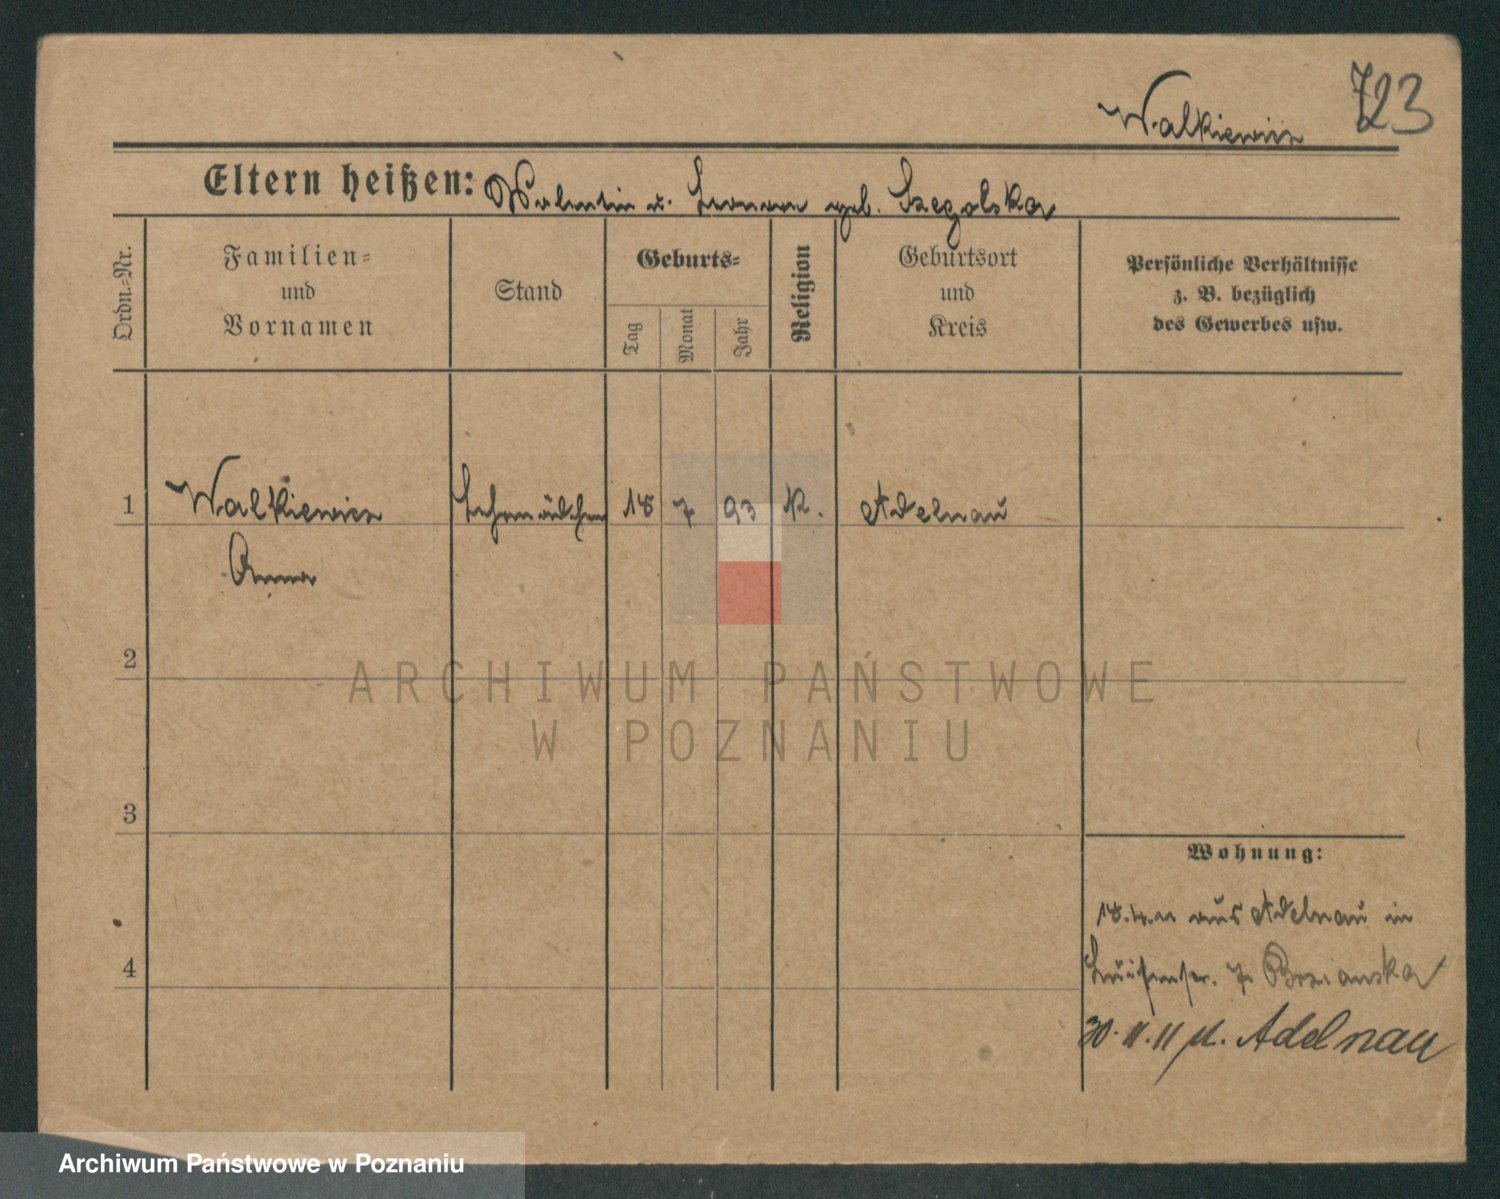 723
Walkiewicz
Eltern heißen: Valentin u. geb. Szegolska
Ordn.-Nr.
Familien-
und
Vornamen
Stand
Geburts-
Tag
Monat
Jahr
Religion
Geburtsort
und
Kreis
Persönliche Verhältnisse
z. B. bezüglich
des Gewerbes usw.
1 Walkiewicz Lehrmädchen 18 7 93 K. Adelnau
Anna
2
ARCHIWUM PAŃSTWOWE
W POZNANIU
3
Wohnung:
18.4.11 aus Adelnau in
4
Luisenstr. 7 Brzianska
30.11.11 n. Adelnau
Archiwum Państwowe w Poznaniu